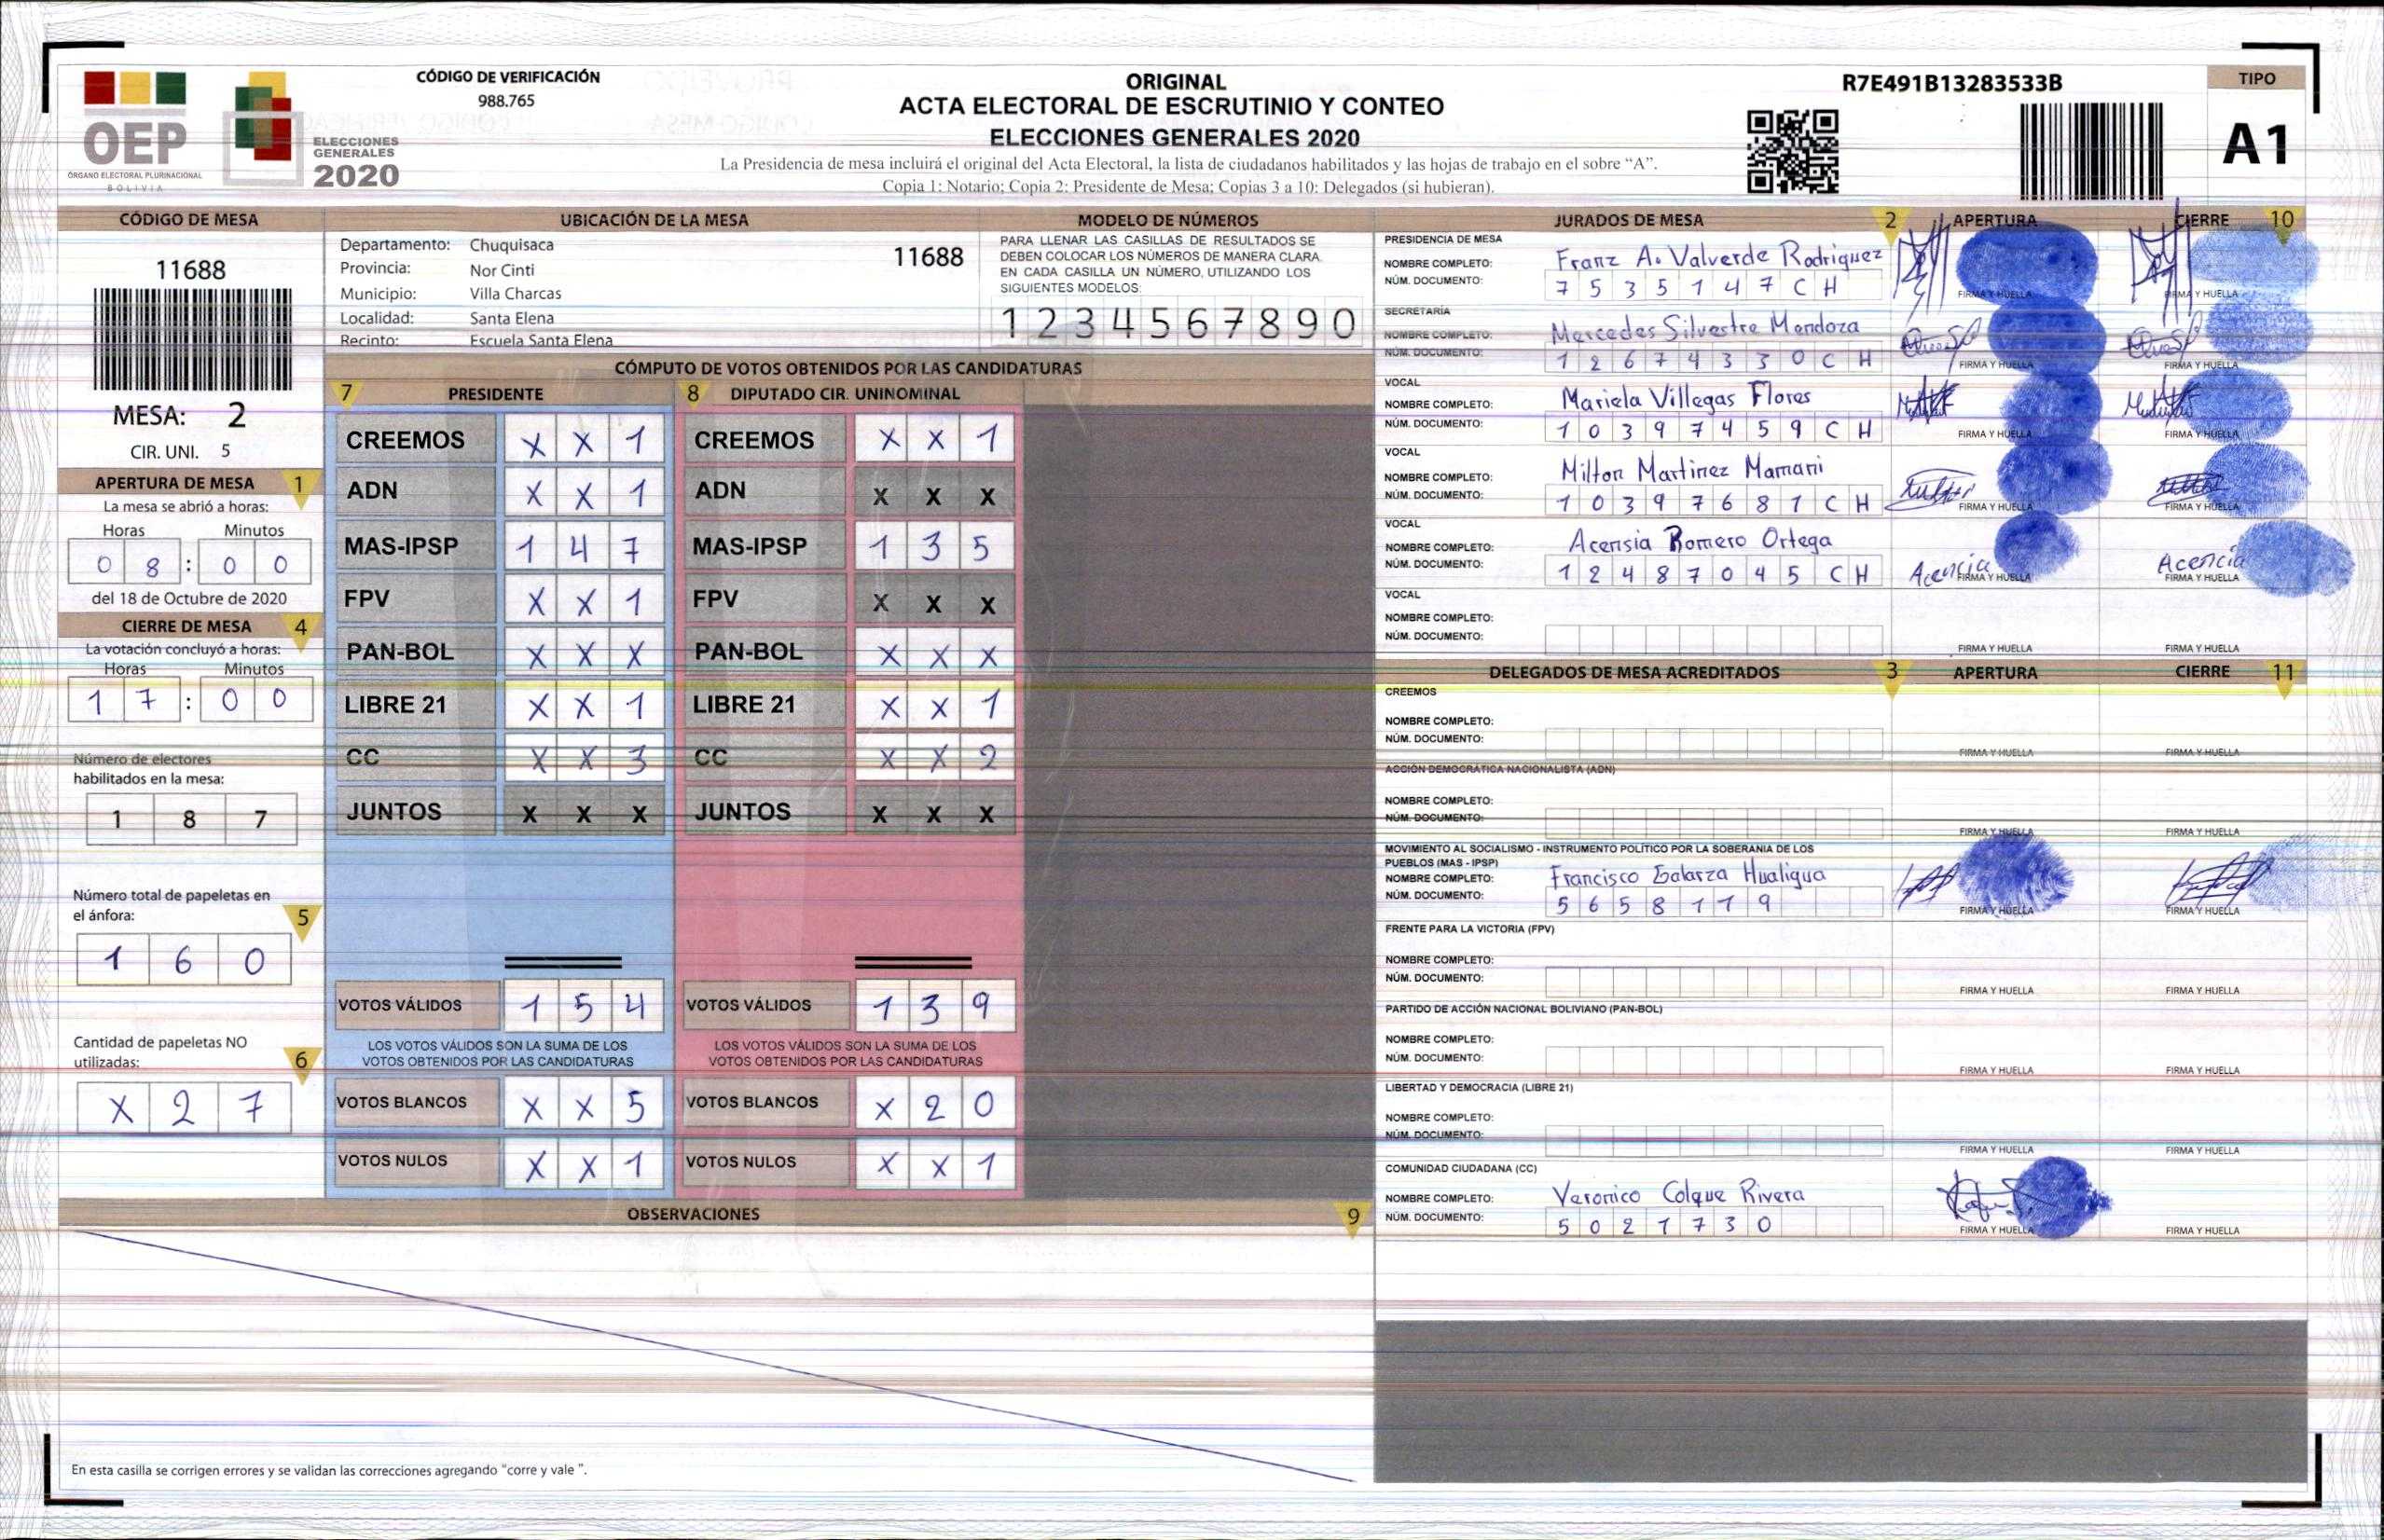 OEP
ÓRGANO ELECTORAL PLURINACIONAL
BOLIVIA
ELECCIONES
GENERALES
2020
CÓDIGO DE VERIFICACIÓN
988.765
ORIGINAL
ACTA ELECTORAL DE ESCRUTINIO Y CONTEO
ELECCIONES GENERALES 2020
La Presidencia de mesa incluirá el original del Acta Electoral, la lista de ciudadanos habilitados y las hojas de trabajo en el sobre “A”.
Copia 1: Notario; Copia 2: Presidente de Mesa; Copias 3 a 10: Delegados (si hubieran).
R7E491B13283533B
TIPO
A1
CÓDIGO DE MESA
11688
MESA: 2
CIR. UNI. 5
APERTURA DE MESA 1
La mesa se abrió a horas:
Horas Minutos
0 8 : 0 0
del 18 de Octubre de 2020
CIERRE DE MESA 4
La votación concluyó a horas:
Horas Minutos
1 7 : 0 0
Número de electores
habilitados en la mesa:
1 8 7
Número total de papeletas en
el ánfora: 5
1 6 0
Cantidad de papeletas NO
utilizadas: 6
X 2 7
UBICACIÓN DE LA MESA
Departamento: Chuquisaca 11688
Provincia: Nor Cinti
Municipio: Villa Charcas
Localidad: Santa Elena
Recinto: Escuela Santa Elena
MODELO DE NÚMEROS
PARA LLENAR LAS CASILLAS DE RESULTADOS SE
DEBEN COLOCAR LOS NÚMEROS DE MANERA CLARA.
EN CADA CASILLA UN NÚMERO, UTILIZANDO LOS
SIGUIENTES MODELOS:
1 2 3 4 5 6 7 8 9 0
CÓMPUTO DE VOTOS OBTENIDOS POR LAS CANDIDATURAS
7 PRESIDENTE 8 DIPUTADO CIR. UNINOMINAL
CREEMOS X X 1 CREEMOS X X 1
ADN X X 1 ADN X X X
MAS-IPSP 1 4 7 MAS-IPSP 1 3 5
FPV X X 1 FPV X X X
PAN-BOL X X X PAN-BOL X X X
LIBRE 21 X X 1 LIBRE 21 X X 1
CC X X 3 CC X X 2
JUNTOS X X X JUNTOS X X X
VOTOS VÁLIDOS 1 5 4 VOTOS VÁLIDOS 1 3 9
LOS VOTOS VÁLIDOS SON LA SUMA DE LOS LOS VOTOS VÁLIDOS SON LA SUMA DE LOS
VOTOS OBTENIDOS POR LAS CANDIDATURAS VOTOS OBTENIDOS POR LAS CANDIDATURAS
VOTOS BLANCOS X X 5 VOTOS BLANCOS X 2 0
VOTOS NULOS X X 1 VOTOS NULOS X X 1
OBSERVACIONES 9
En esta casilla se corrigen errores y se validan las correcciones agregando “corre y vale ”.
JURADOS DE MESA 2 APERTURA CIERRE 10
PRESIDENCIA DE MESA
NOMBRE COMPLETO: Franz A. Valverde Rodriguez
NÚM. DOCUMENTO: 7 5 3 5 1 4 7 C H
FIRMA Y HUELLA FIRMA Y HUELLA
SECRETARÍA
NOMBRE COMPLETO: Mercedes Silvestre Mendoza
NÚM. DOCUMENTO: 1 2 6 7 4 3 3 0 C H
FIRMA Y HUELLA FIRMA Y HUELLA
VOCAL
NOMBRE COMPLETO: Mariela Villegas Flores
NÚM. DOCUMENTO: 1 0 3 9 7 4 5 9 C H
FIRMA Y HUELLA FIRMA Y HUELLA
VOCAL
NOMBRE COMPLETO: Milton Martinez Mamani
NÚM. DOCUMENTO: 1 0 3 9 7 6 8 1 C H
FIRMA Y HUELLA FIRMA Y HUELLA
VOCAL
NOMBRE COMPLETO: Acensia Romero Ortega
NÚM. DOCUMENTO: 1 2 4 8 7 0 4 5 C H Acencia Acencia
FIRMA Y HUELLA FIRMA Y HUELLA
VOCAL
NOMBRE COMPLETO:
NÚM. DOCUMENTO:
FIRMA Y HUELLA FIRMA Y HUELLA
DELEGADOS DE MESA ACREDITADOS 3 APERTURA CIERRE 11
CREEMOS
NOMBRE COMPLETO:
NÚM. DOCUMENTO:
FIRMA Y HUELLA FIRMA Y HUELLA
ACCIÓN DEMOCRÁTICA NACIONALISTA (ADN)
NOMBRE COMPLETO:
NÚM. DOCUMENTO:
FIRMA Y HUELLA FIRMA Y HUELLA
MOVIMIENTO AL SOCIALISMO - INSTRUMENTO POLÍTICO POR LA SOBERANIA DE LOS
PUEBLOS (MAS - IPSP)
NOMBRE COMPLETO: Francisco Galarza Hualigua
NÚM. DOCUMENTO: 5 6 5 8 1 1 9
FIRMA Y HUELLA FIRMA Y HUELLA
FRENTE PARA LA VICTORIA (FPV)
NOMBRE COMPLETO:
NÚM. DOCUMENTO:
FIRMA Y HUELLA FIRMA Y HUELLA
PARTIDO DE ACCIÓN NACIONAL BOLIVIANO (PAN-BOL)
NOMBRE COMPLETO:
NÚM. DOCUMENTO:
FIRMA Y HUELLA FIRMA Y HUELLA
LIBERTAD Y DEMOCRACIA (LIBRE 21)
NOMBRE COMPLETO:
NÚM. DOCUMENTO:
FIRMA Y HUELLA FIRMA Y HUELLA
COMUNIDAD CIUDADANA (CC)
NOMBRE COMPLETO: Veronico Colque Rivera
NÚM. DOCUMENTO: 5 0 2 1 7 3 0
FIRMA Y HUELLA FIRMA Y HUELLA